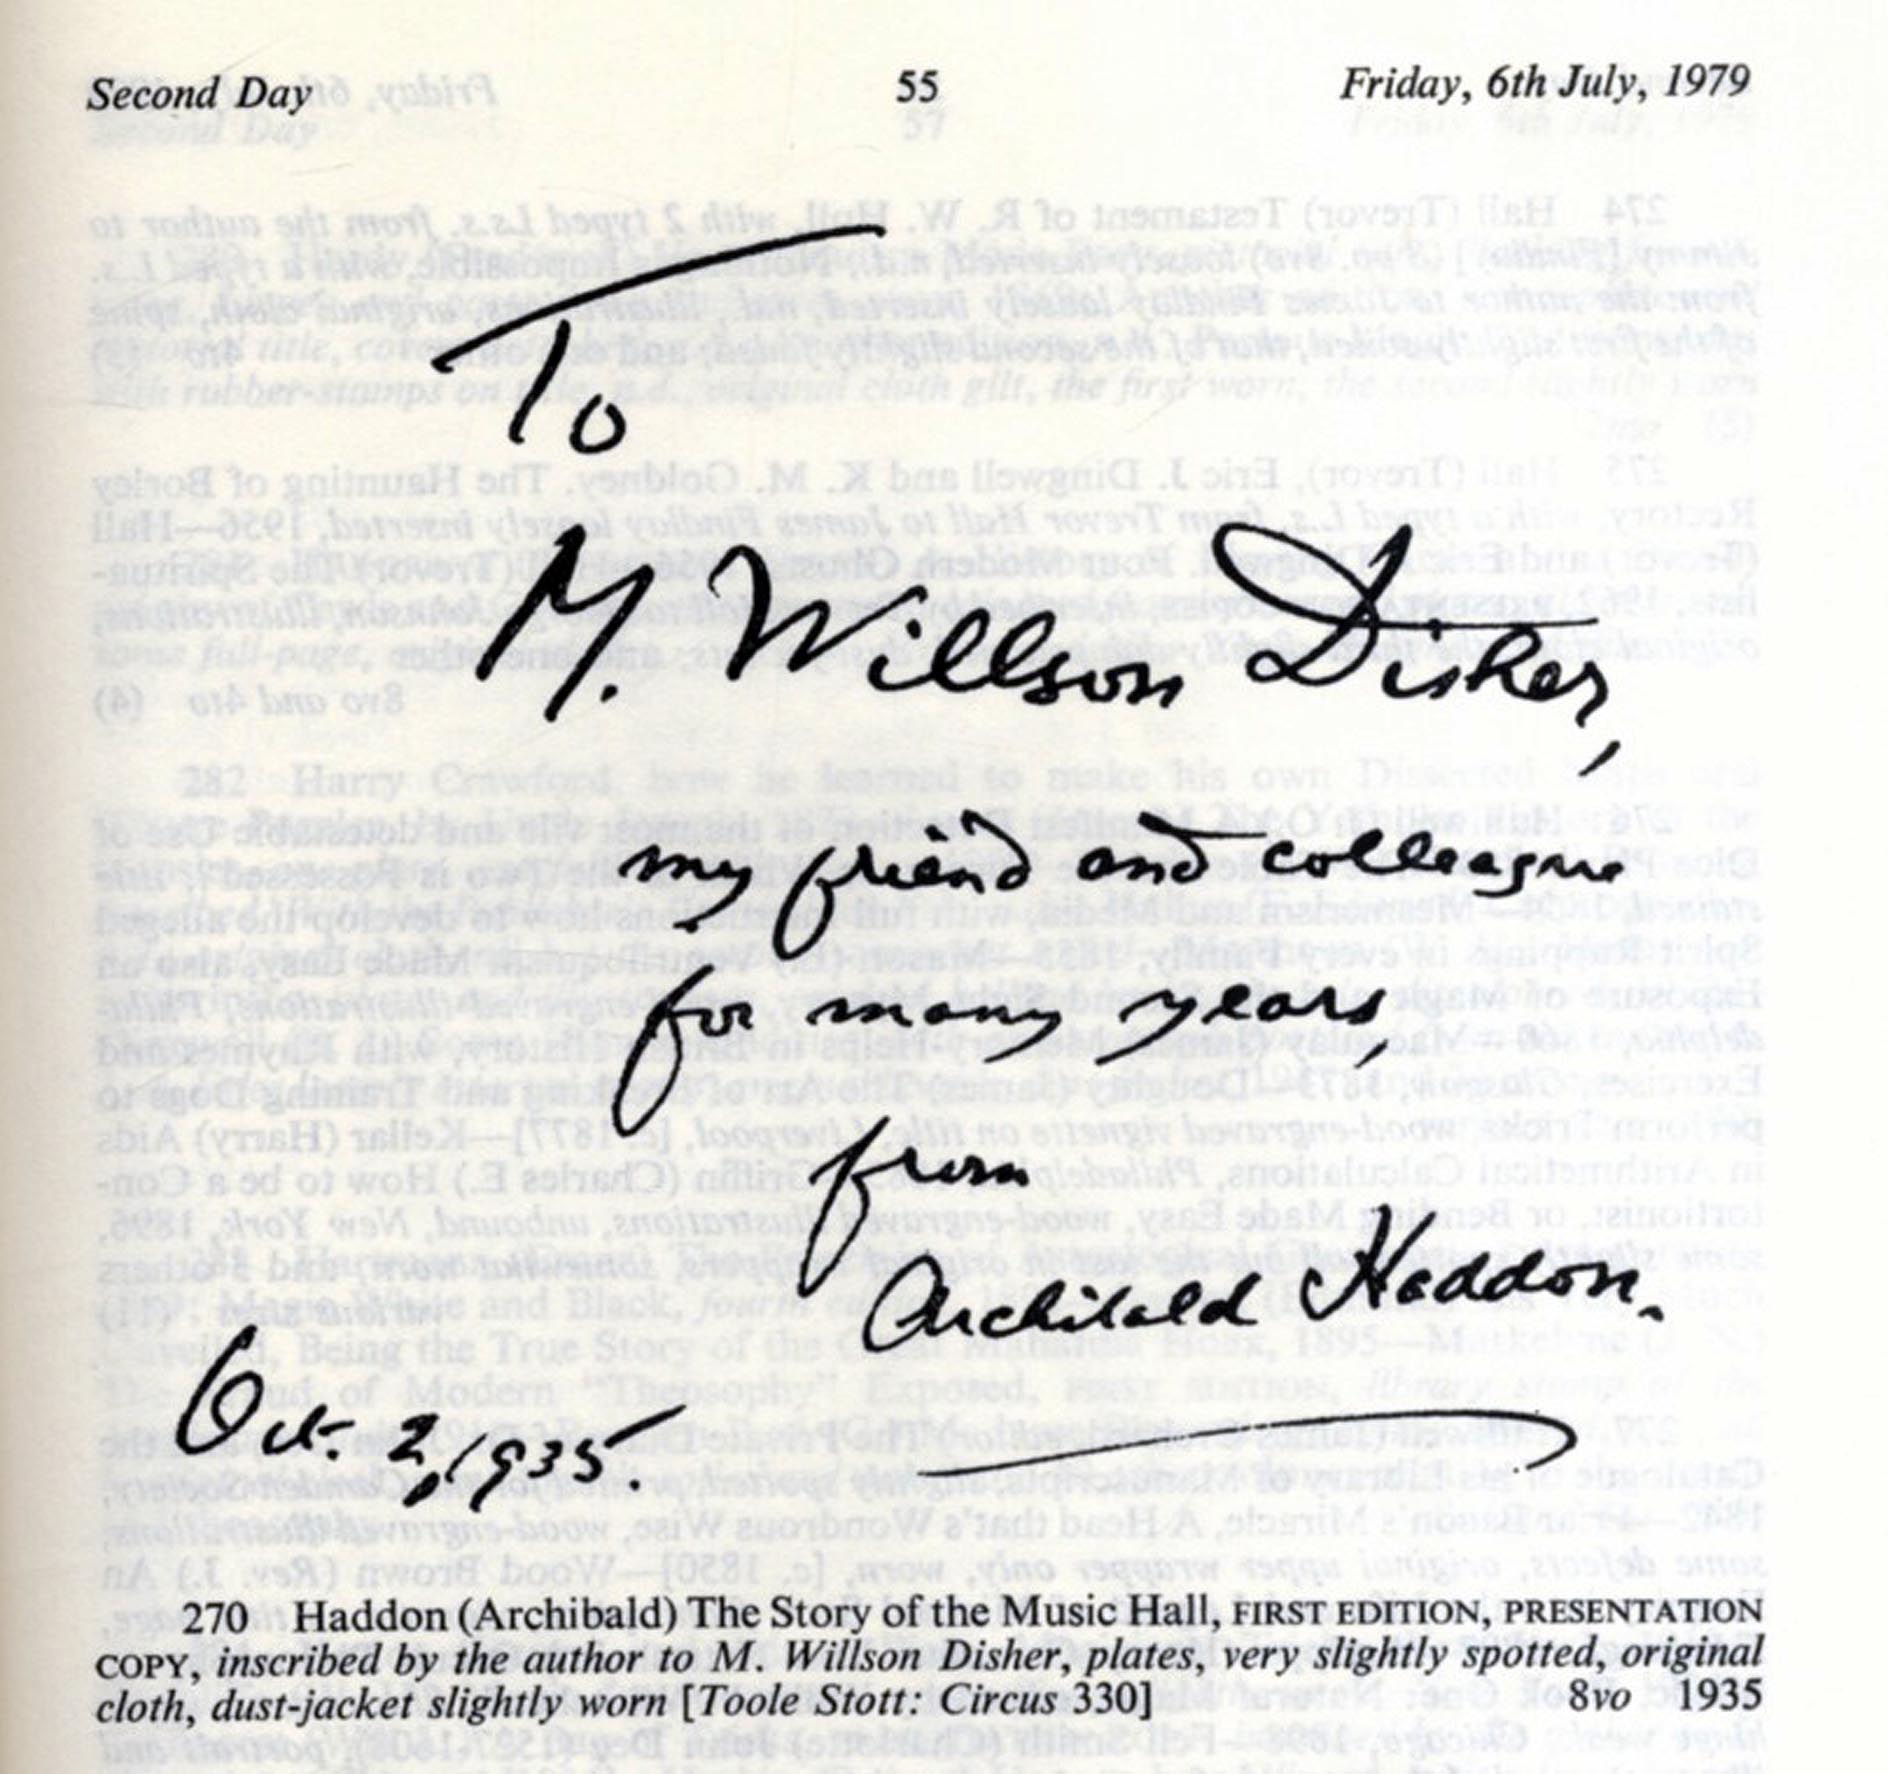 Second Day 55 Friday, 6th July, 1979
To
M. Willson Disher,
my friend and colleague
for many years,
from
Archibald Haddon.
Oct. 2, 1935.
270 Haddon (Archibald) The Story of the Music Hall, FIRST EDITION, PRESENTATION
COPY, inscribed by the author to M. Willson Disher, plates, very slightly spotted, original
cloth, dust-jacket slightly worn [Toole Stott: Circus 330] 8vo 1935